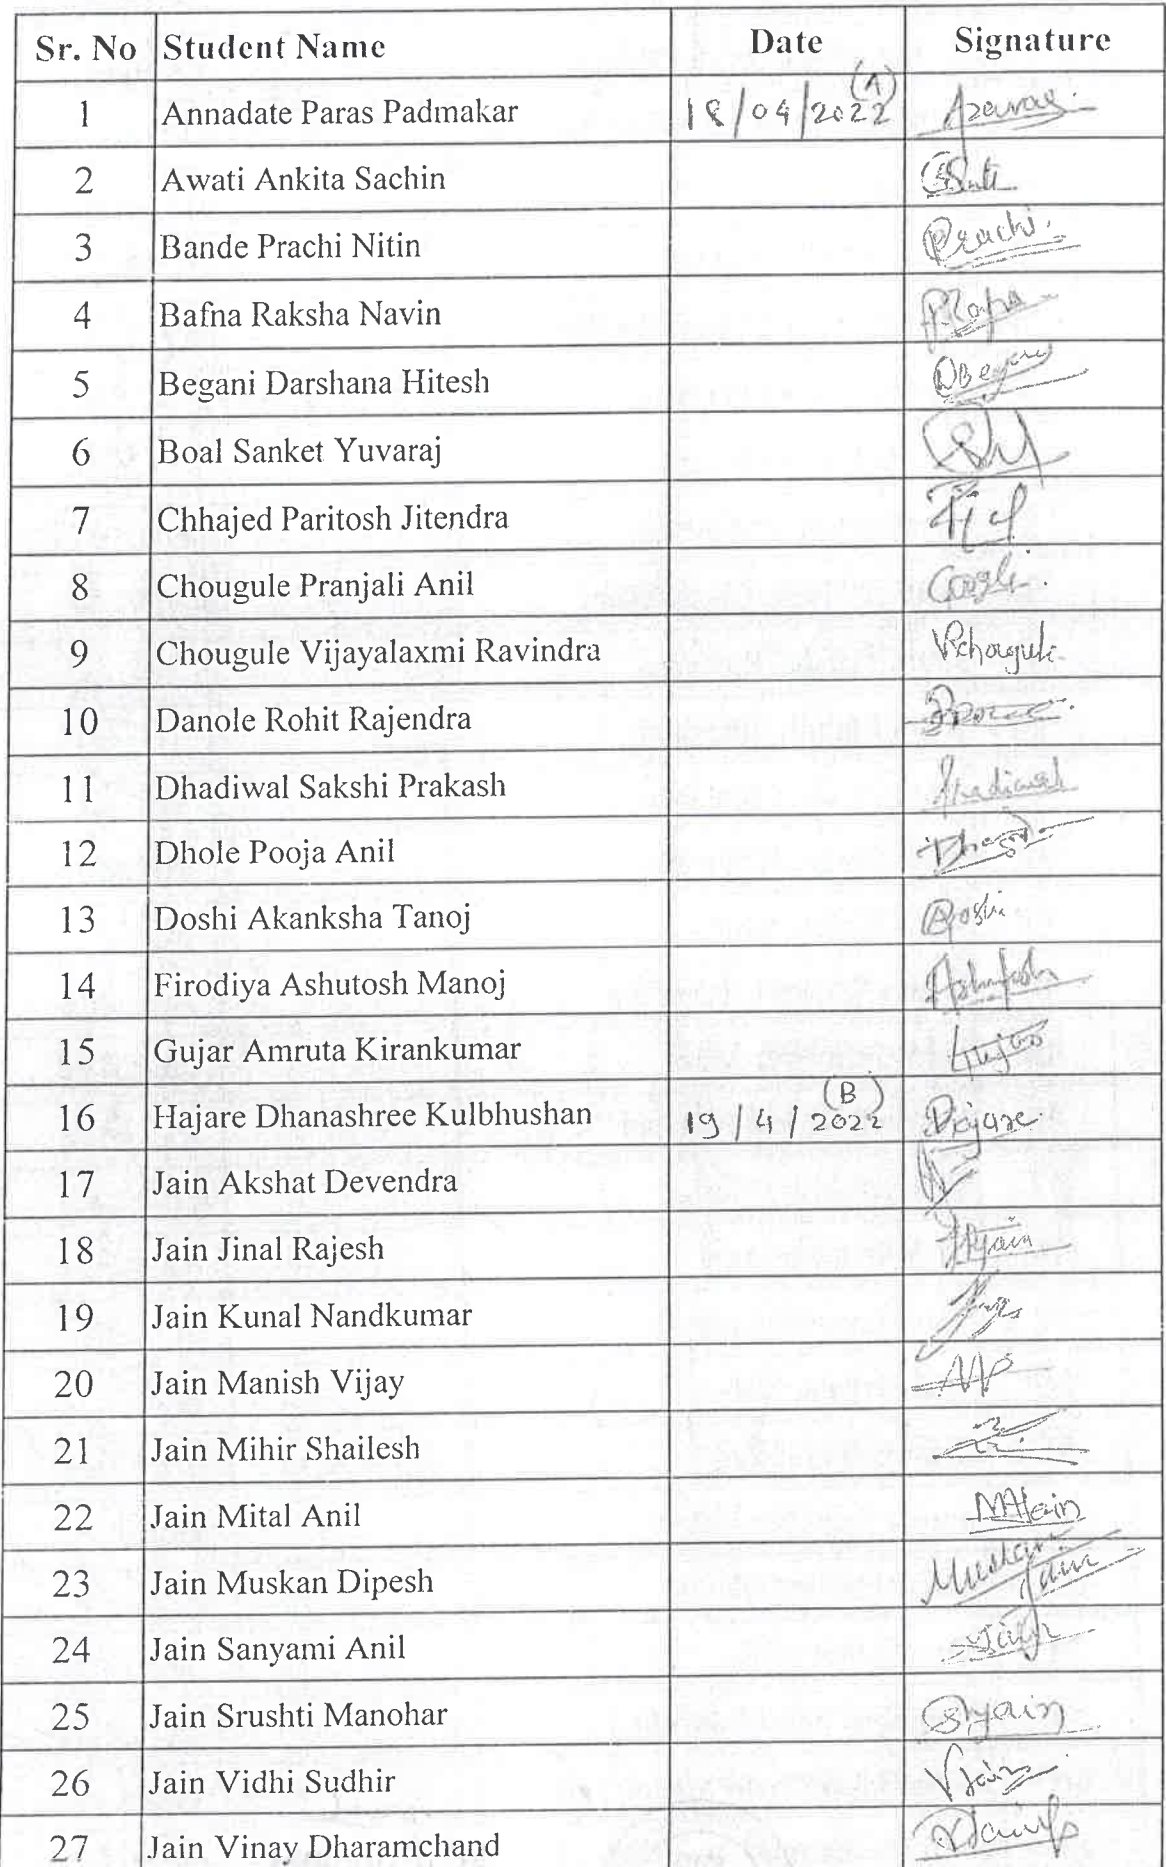 Sr. No Student Name Date Signature
1 Annadate Paras Padmakar 18/04/2022 (A)
2 Awati Ankita Sachin
3 Bande Prachi Nitin Prachi.
4 Bafna Raksha Navin
5 Begani Darshana Hitesh
6 Boal Sanket Yuvaraj
7 Chhajed Paritosh Jitendra
8 Chougule Pranjali Anil
9 Chougule Vijayalaxmi Ravindra
10 Danole Rohit Rajendra
11 Dhadiwal Sakshi Prakash
12 Dhole Pooja Anil
13 Doshi Akanksha Tanoj
14 Firodiya Ashutosh Manoj
15 Gujar Amruta Kirankumar
16 Hajare Dhanashree Kulbhushan 19/4/2022 (B)
17 Jain Akshat Devendra
18 Jain Jinal Rajesh
19 Jain Kunal Nandkumar
20 Jain Manish Vijay
21 Jain Mihir Shailesh
22 Jain Mital Anil
23 Jain Muskan Dipesh Muskan Jain
24 Jain Sanyami Anil
25 Jain Srushti Manohar
26 Jain Vidhi Sudhir
27 Jain Vinay Dharamchand